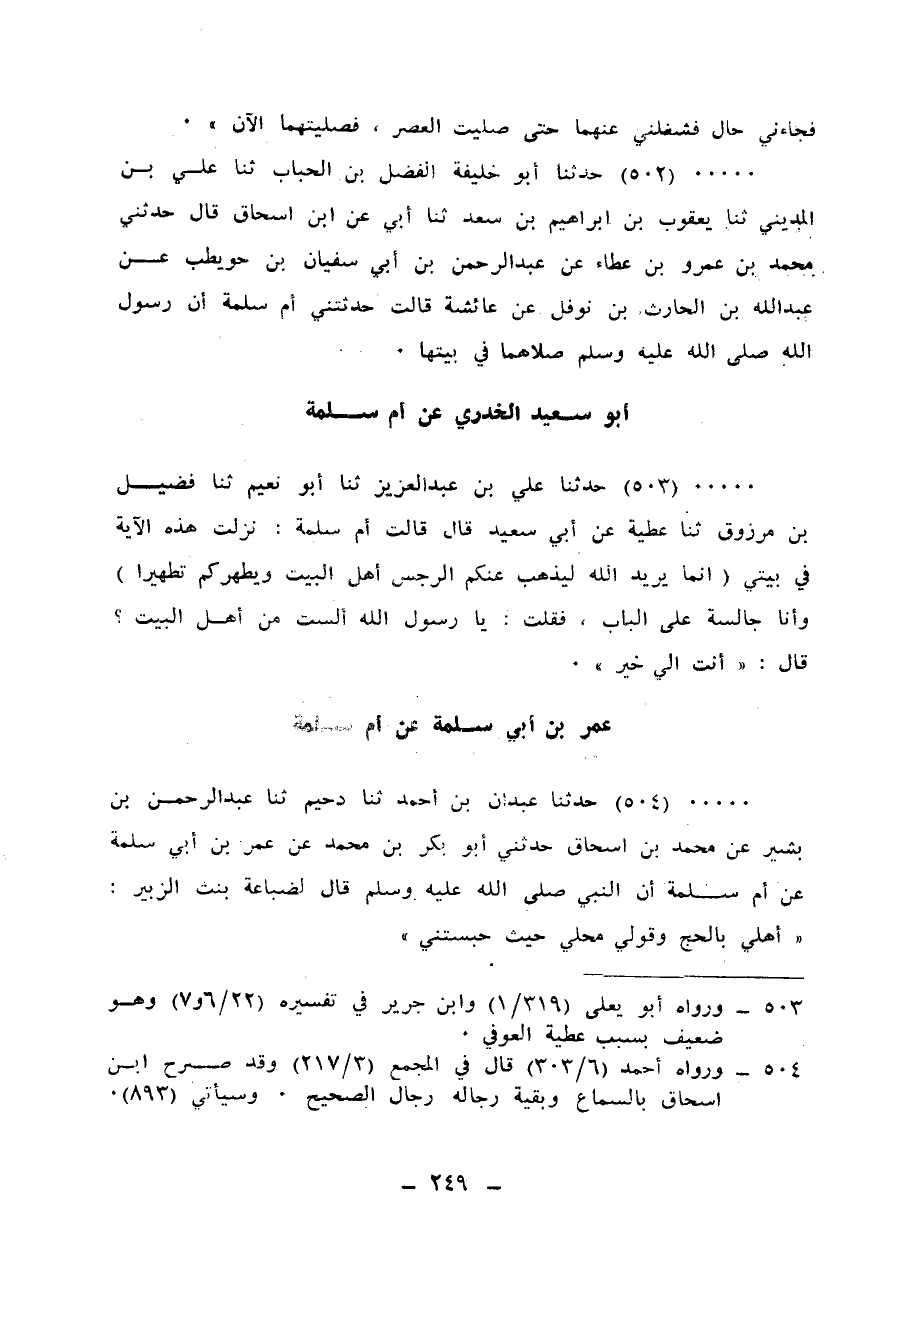 فجاءني حال فشغلني عنهما حتى صليت العصر ، فصليتهما الآن » ٠
٠٠٠٠٠ (٥٠٢) حدثنا أبو خليفة الفضل بن الحباب ثنا علي بن
المديني ثنا يعقوب بن ابراهيم بن سعد ثنا أبي عن ابن اسحاق قال حدثني
محمد بن عمرو بن عطاء عن عبدالرحمن بن أبي سفيان بن حويطب عن
عبدالله بن الحارث بن نوفل عن عائشة قالت حدثتني أم سلمة أن رسول
الله صلى الله عليه وسلم صلاهما في بيتها ٠
أبو سعيد الخدري عن أم سلمة
٠٠٠٠٠ (٥٠٣) حدثنا علي بن عبدالعزيز ثنا أبو نعيم ثنا فضيل
بن مرزوق ثنا عطية عن أبي سعيد قال قالت أم سلمة : نزلت هذه الآية
في بيتي ( انما يريد الله ليذهب عنكم الرجس أهل البيت ويطهركم تطهيرا )
وأنا جالسة على الباب ، فقلت : يا رسول الله ألست من أهل البيت ؟
قال : « أنت الي خير » ٠
عمر بن أبي سلمة عن أم سلمة
٠٠٠٠٠ (٥٠٤) حدثنا عبدان بن أحمد ثنا دحيم ثنا عبدالرحمن بن
بشير عن محمد بن اسحاق حدثني أبو بكر بن محمد عن عمر بن أبي سلمة
عن أم سلمة أن النبي صلى الله عليه وسلم قال لضباعة بنت الزبير :
« أهلي بالحج وقولي محلي حيث حبستني »
٥٠٣ ـ ورواه أبو يعلى (١/٣١٩) وابن جرير في تفسيره (٦/٢٢و٧) وهو
ضعيف بسبب عطية العوفي ٠
٥٠٤ ـ ورواه أحمد (٣٠٣/٦) قال في المجمع (٢١٧/٣) وقد صرح ابن
اسحاق بالسماع وبقية رجاله رجال الصحيح ٠ وسيأتي (٨٩٣)٠
ـ ٢٤٩ ـ